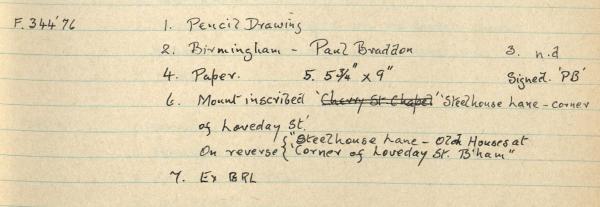 F.344'76 1. Pencil Drawing
2. Birmingham - Paul Braddon 3. n.d
4. Paper. 5. 5¾" x 9" Signed. 'PB'
6. Mount inscribed 'Cherry St Chapel' 'Steelhouse Lane - corner
of Loveday St.'
On reverse { "Steelhouse Lane - Old Houses at
'Corner of Loveday St. B'ham"
7. Ex BRL